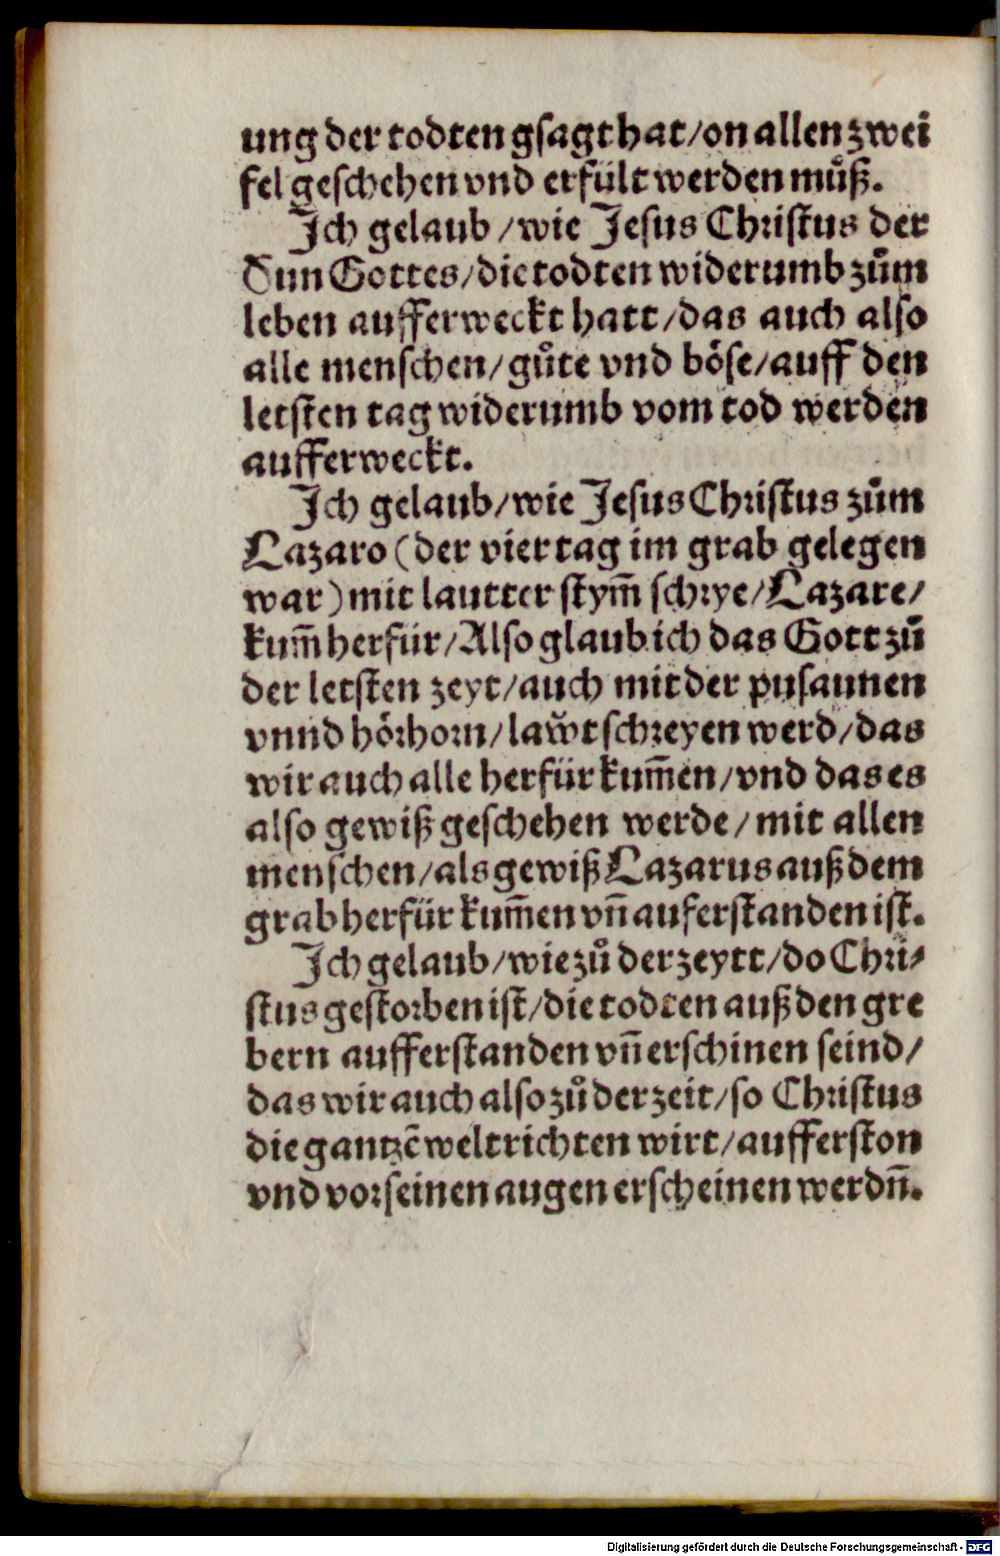 ung der todten gsagt hat/on allen zwei
fel geschehen vnd erfült werden můß.
Ich gelaub/wie Jesus Christus der
Sun Gottes/die todten widerumb zům
leben aufferweckt hatt/das auch also
alle menschen/gůte vnd böse/auff den
letsten tag widerumb vom tod werden
aufferweckt.
Ich gelaub/wie Jesus Christus zům
Lazaro (der vier tag im grab gelegen
war) mit lautter stym̄ schrye/Lazare/
kum̄ herfür/Also glaub ich das Gott zů
der letsten zeyt/auch mit der pusaunen
vnnd hörhorn/law̆t schreyen werd/das
wir auch alle herfür kum̄en/vnd das es
also gewiß geschehen werde/mit allen
menschen/als gewiß Lazarus auß dem
grab herfür kum̄en vn̄ auferstanden ist.
Ich gelaub/wie zů der zeytt/do Chri⸗
stus gestorben ist/die todten auß den gre
bern aufferstanden vn̄ erschinen seind/
das wir auch also zů der zeit/so Christus
die gantzē welt richten wirt/aufferston
vnd vor seinen augen erscheinen werdn̄.
Digitalisierung gefördert durch die Deutsche Forschungsgemeinschaft - DFG